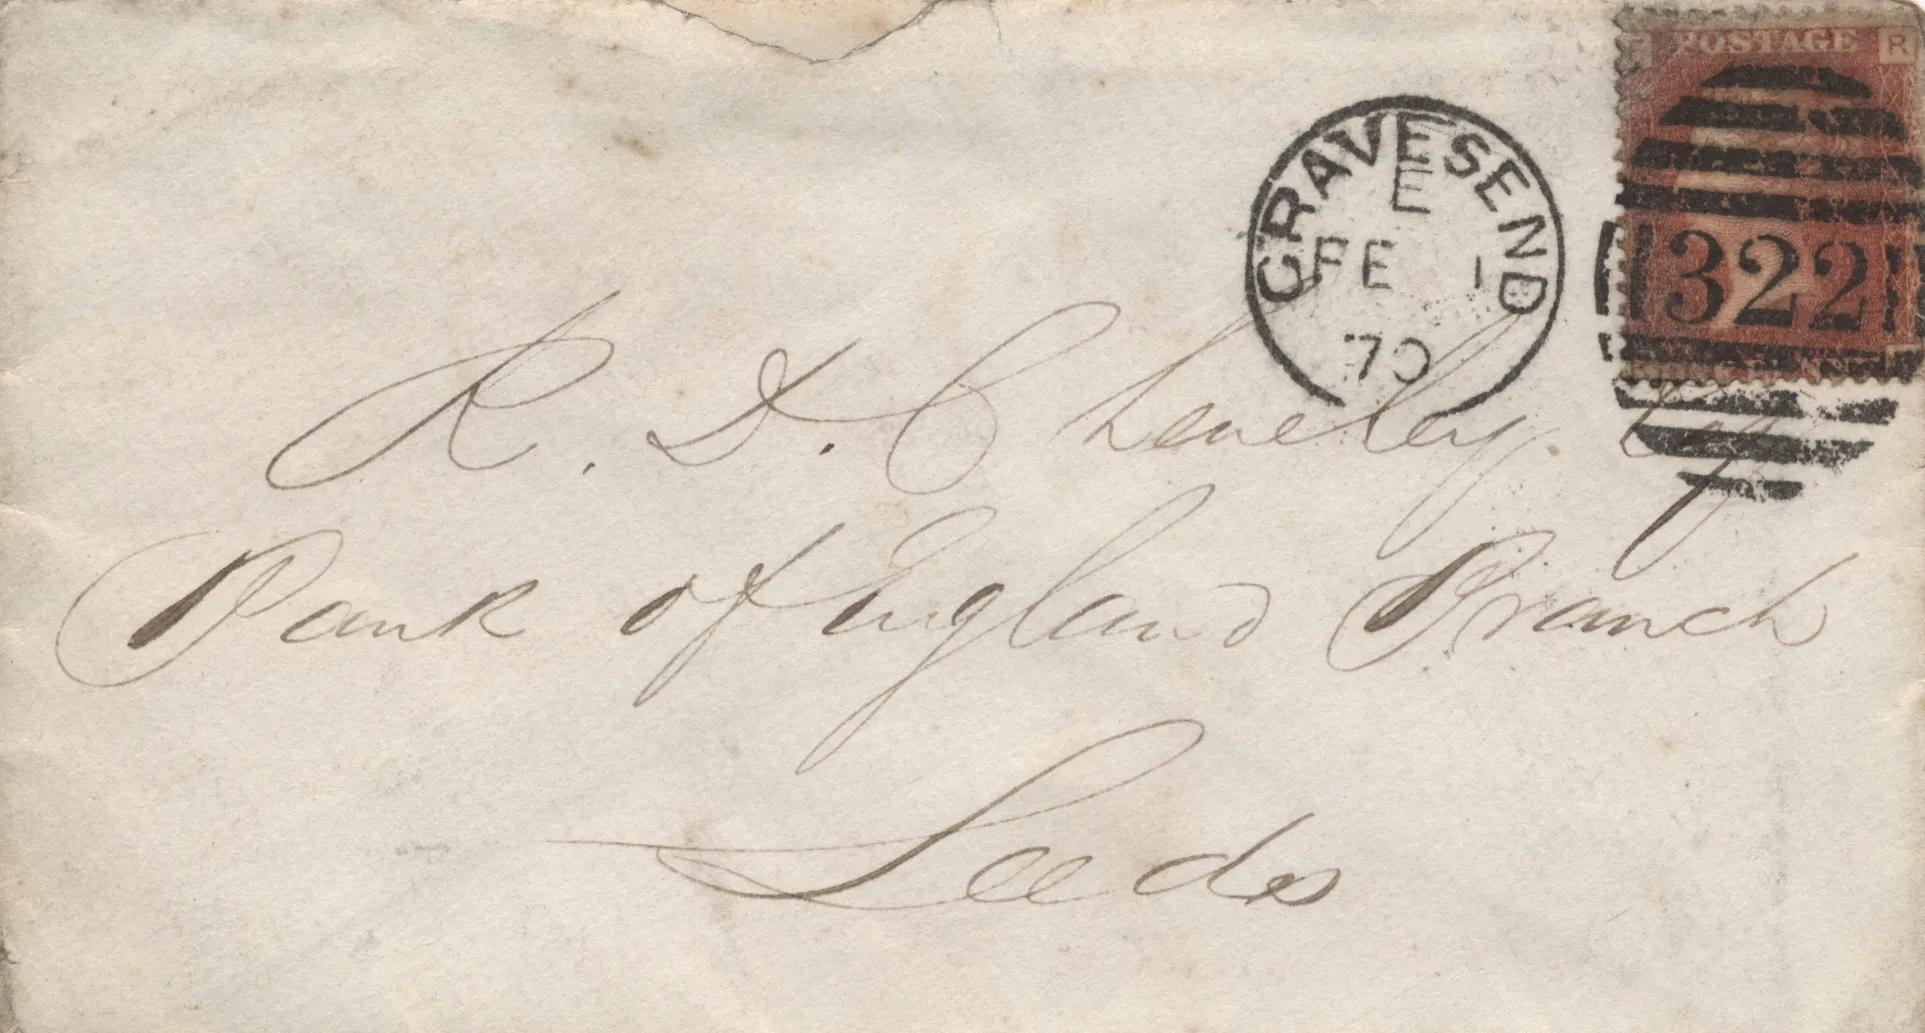 POSTAGE
R
GRAVESEND
E
FE 1
70
322
R. D. Cheveley. Esq
Bank of England Branch
Leeds